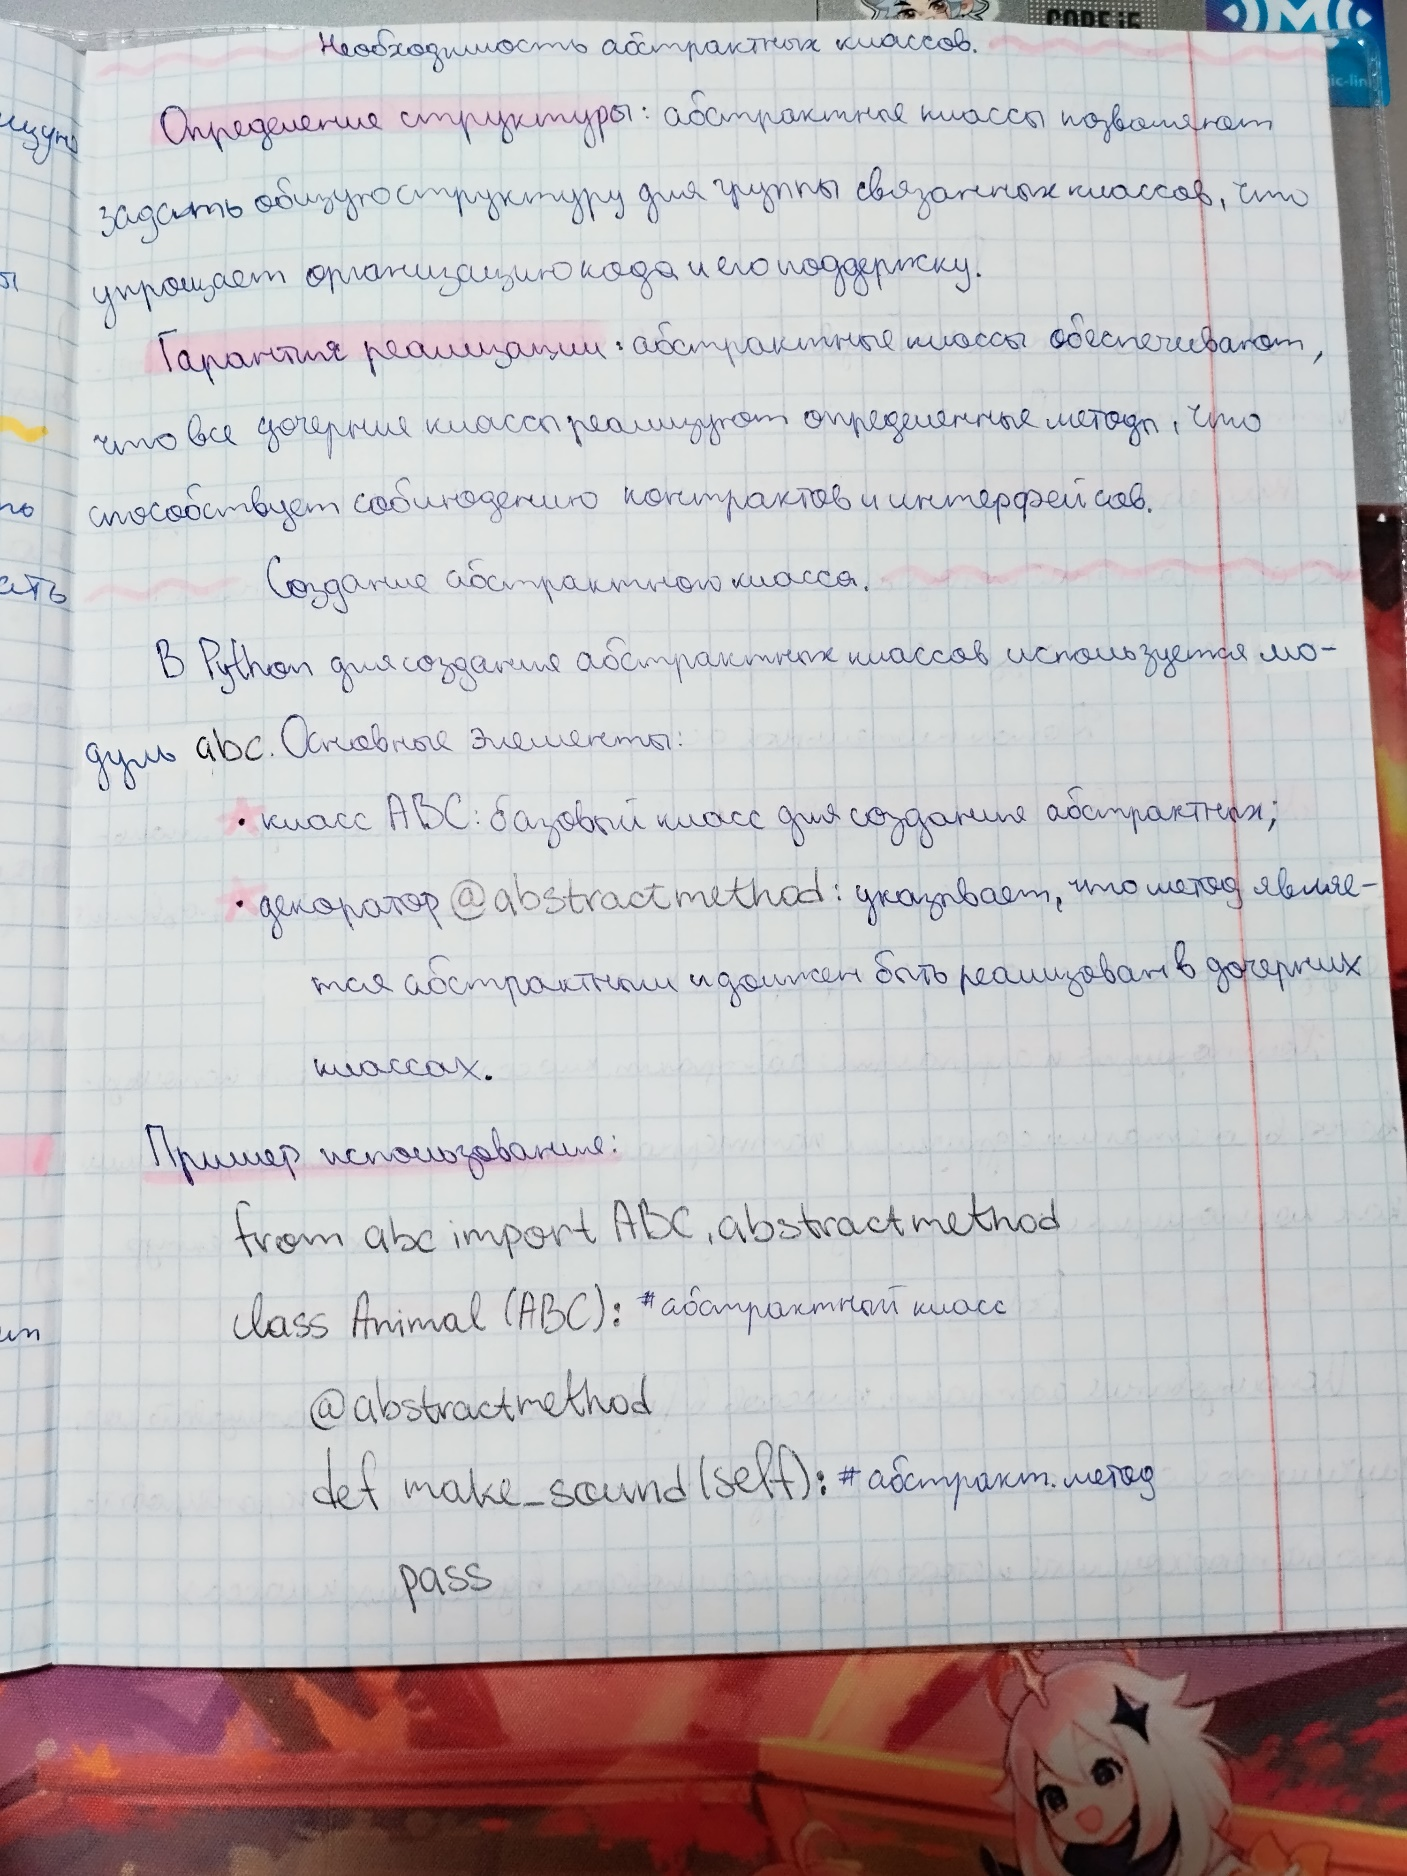 CORE i5
ic-lin
Необходимость абстрактных классов.
Определение структуры: абстрактные классы позволяют
задать общую структуру для группы связанных классов, что
упрощает организацию кода и его поддержку.
Гарантия реализации: абстрактные классы обеспечивают,
что все дочерние классы реализуют определенные методы, что
способствует соблюдению контрактов и интерфейсов.
Создание абстрактного класса.
В Python для создания абстрактных классов используется мо-
дуль abc. Основные элементы:
• класс ABC: базовый класс для создания абстрактных;
• декоратор @abstractmethod: указывает, что метод являе-
тся абстрактным и должен быть реализован в дочерних
классах.
Пример использования:
from abc import ABC, abstractmethod
class Animal (ABC): # абстрактный класс
@abstractmethod
def make_sound(self): # абстракт. метод
pass